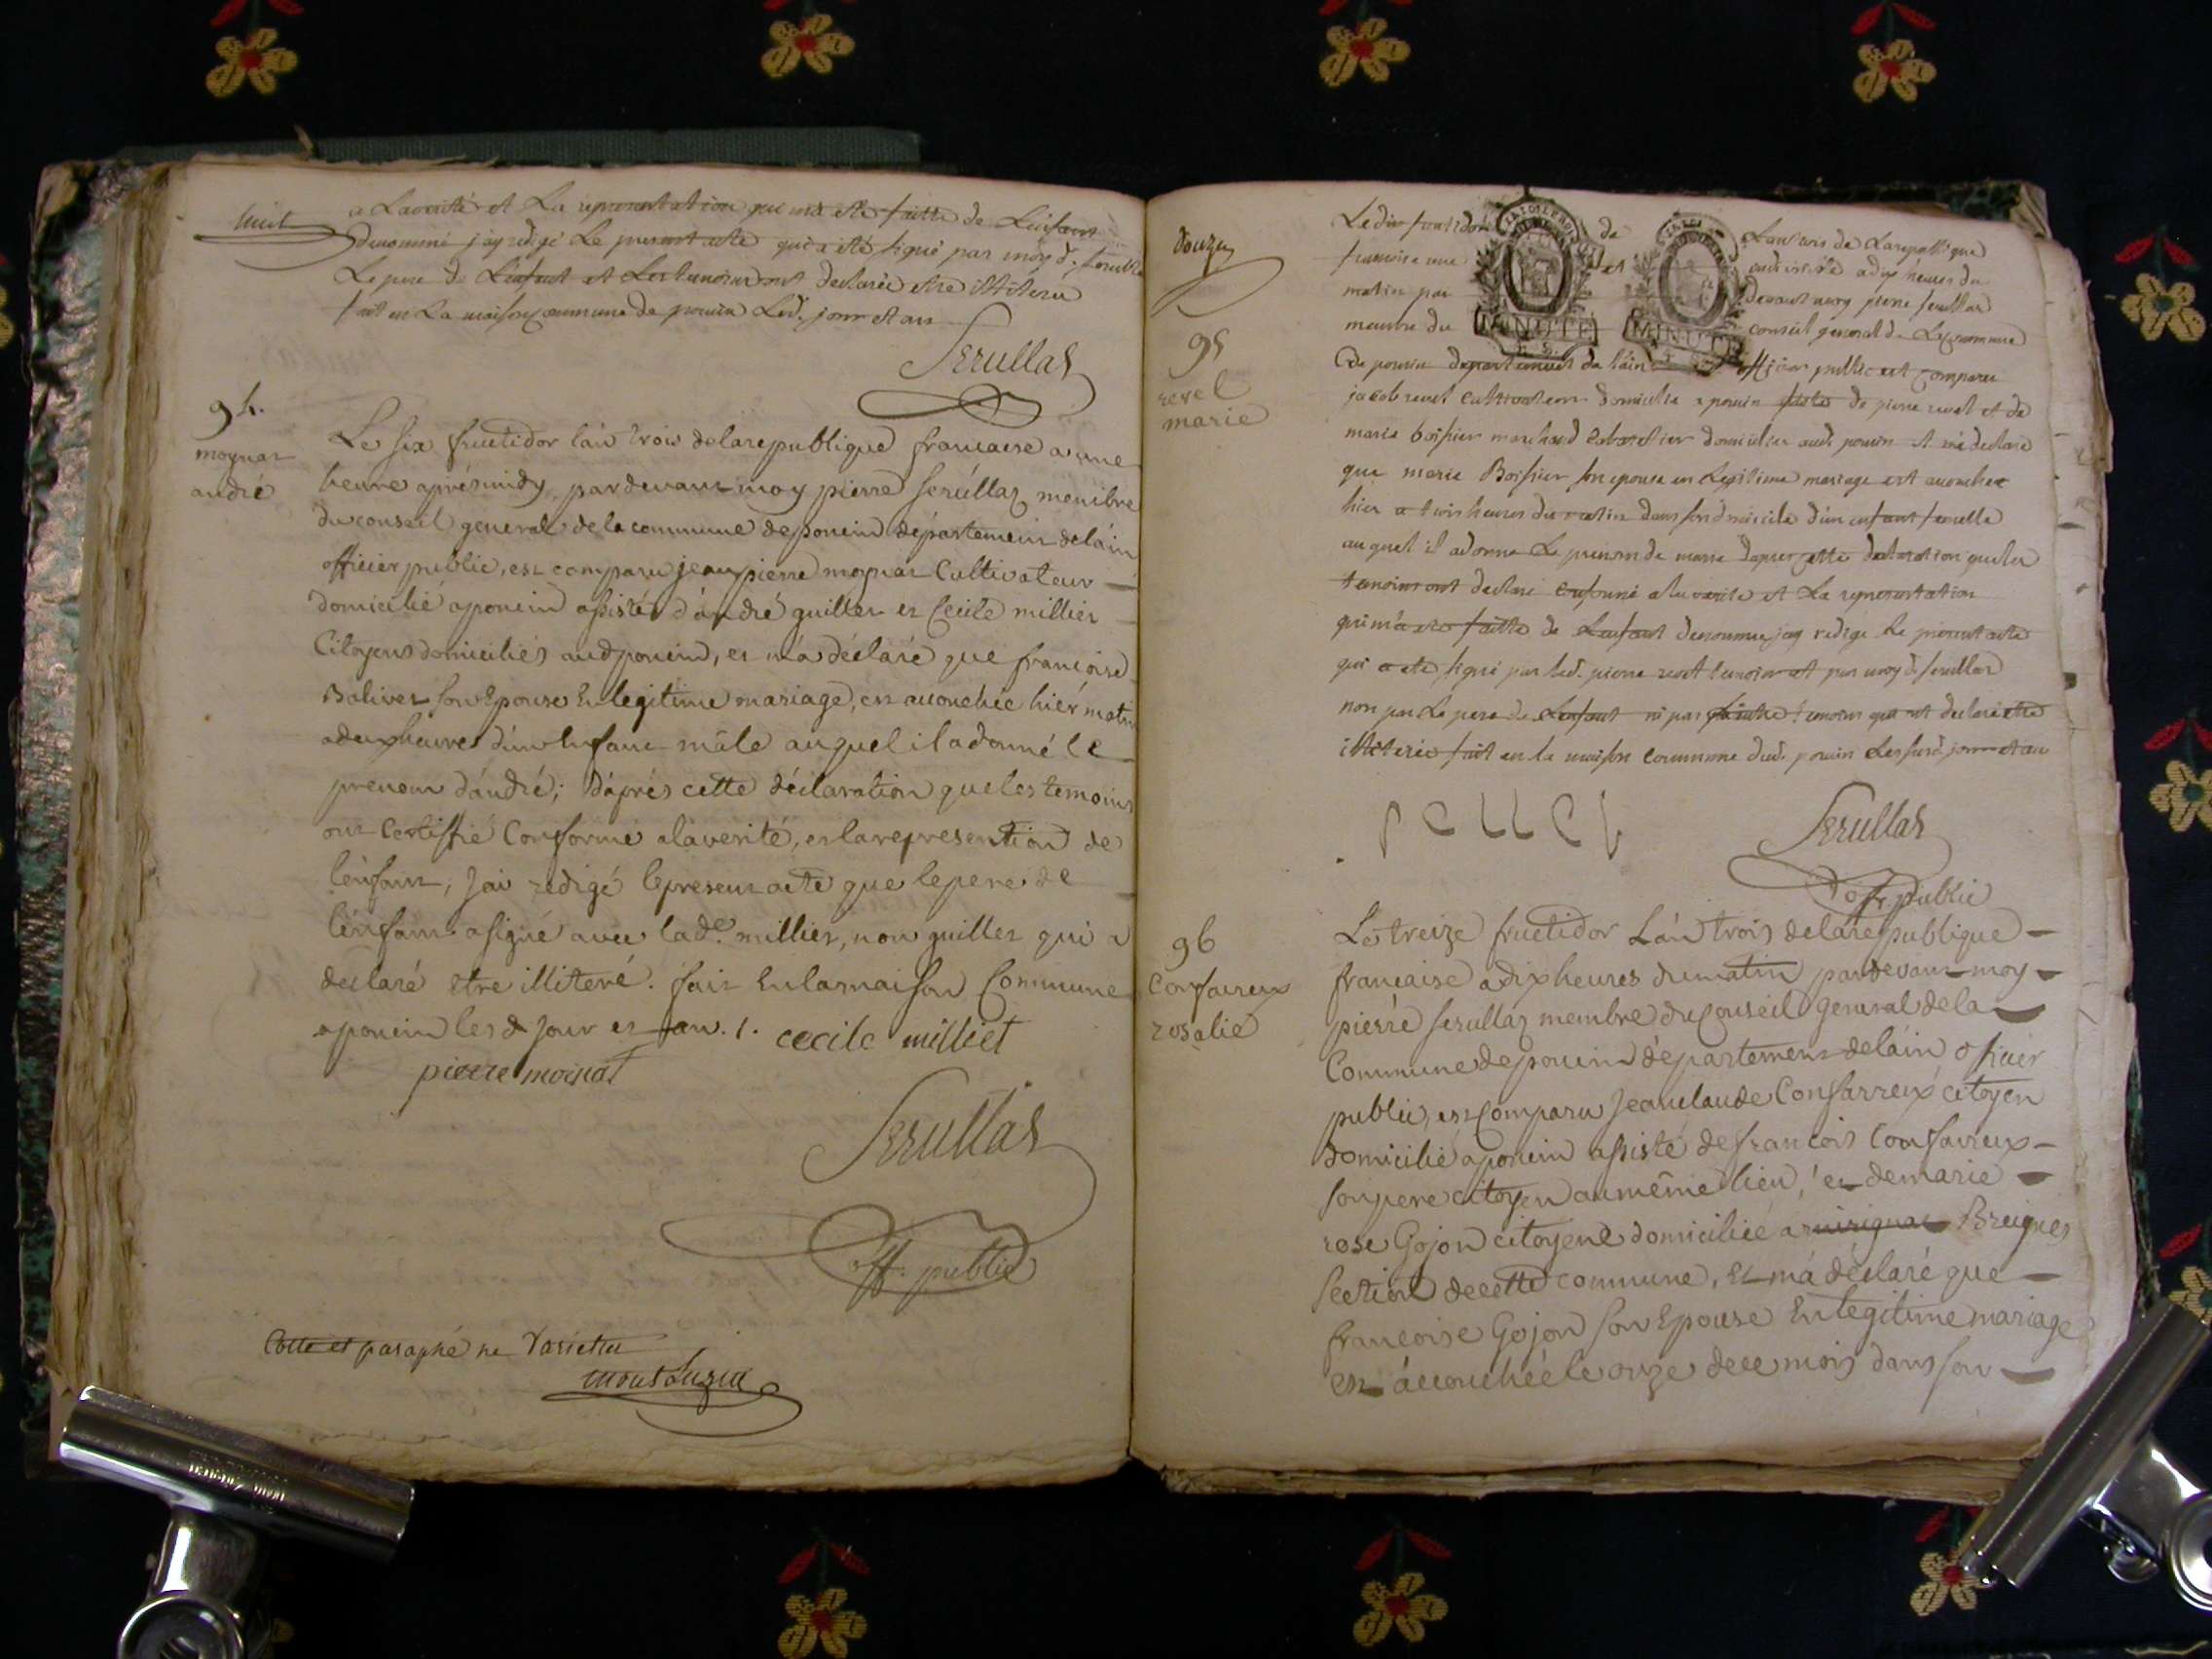 huit
a la verité et La representation qui m'a eté faitte de L'enfant
denommé j'ay redigé Le present acte qui a eté signé par moy d. serullaz
Le pere de L'enfant et Les temoins ont declaré etre illiteré
fait en La maison commune de poncin Led. jour et an
Serullas
94.
moynat
andré
Le six fructidor lán trois delarepublique francaise a une
heure aprésmidy, pardevant moy pierre serúllaz membre
du conseil general de la commune de poncin département de láin
officier public, est comparu jean pierre moynat Cultivateur
domicilié a poncin assisté d'andré guillet et Cecile milliet
Citoyens domiciliés aud poncin, et má déclaré que francoise
Balivet son Epouse En legitime mariage, est accouchée hiér matin
a deux heures d'un Enfant mâle auquel il a donné le
prenom d'ándré; D'áprés cette déclaration que les temoins
ont Certiffié Conforme a la verité, et la represention de
lénfant, Jai redigé le present acte que le pere de
lénfant a signé avec lad.e milliet, non guillet qui a
declaré etre illiteré. fait En la maison Commune
a poncin les d Jour et an. /. cecile milliet
pierre moinat
Serullas
off. public
Cotte et paraphé ne Varietur
montluzin
douze
95
revel
marie
Le dix fructidor de L'an trois de La republique
francoise une et a dix heures du
matin par devant moy pierre serullas
membre du conseil general de La commune
de poncin departement de l'ain officier public est comparu
jacob revel cultivateur domicilie a poncin de pierre revel et de
marie boissier marchand cabaretier domicilies aud. poncin et m'a declaré
que marie Boissier son epouse en Legitime mariage est accouchee
hier a trois heures du matin dans son domicile d'un enfant femelle
auquel il a donne Le prenom de marie d'apres cette declaration que les
temoins ont declaré conforme a la verite et La representation
qui m'a ete faitte de L'enfant denommé j'ay redigé le present acte
qui a ete signé par led. pierre revel temoin et par moy d. serullas
non par Le pere de L'enfant ni par L'autre temoin qui ont declaré etre
illiteré fait en la maison commune dud. poncin Les susd. jour et an
revel
Serullas
off. public
96
Confaureux
rosalie
Le treize fructidor Lán trois de la republique
francaise a dix heures du matin pardevant moy
pierre serullaz membre du Conseil general de la
Commune de poncin département de láin officier
public, est Comparu Jean claude Confarreux citoyen
domicilié a poncin assisté de francois Confaureux
son pere citoyen au même lieu, et de marie
rose Gojon citoyene domiciliée a Breignes
section de cette commune, Et má déclaré que
francoise Gojon son Epouse En legitime mariage
est accouchée le onze de ce mois dans son